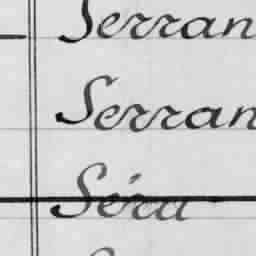 Serran
Serran
Séra